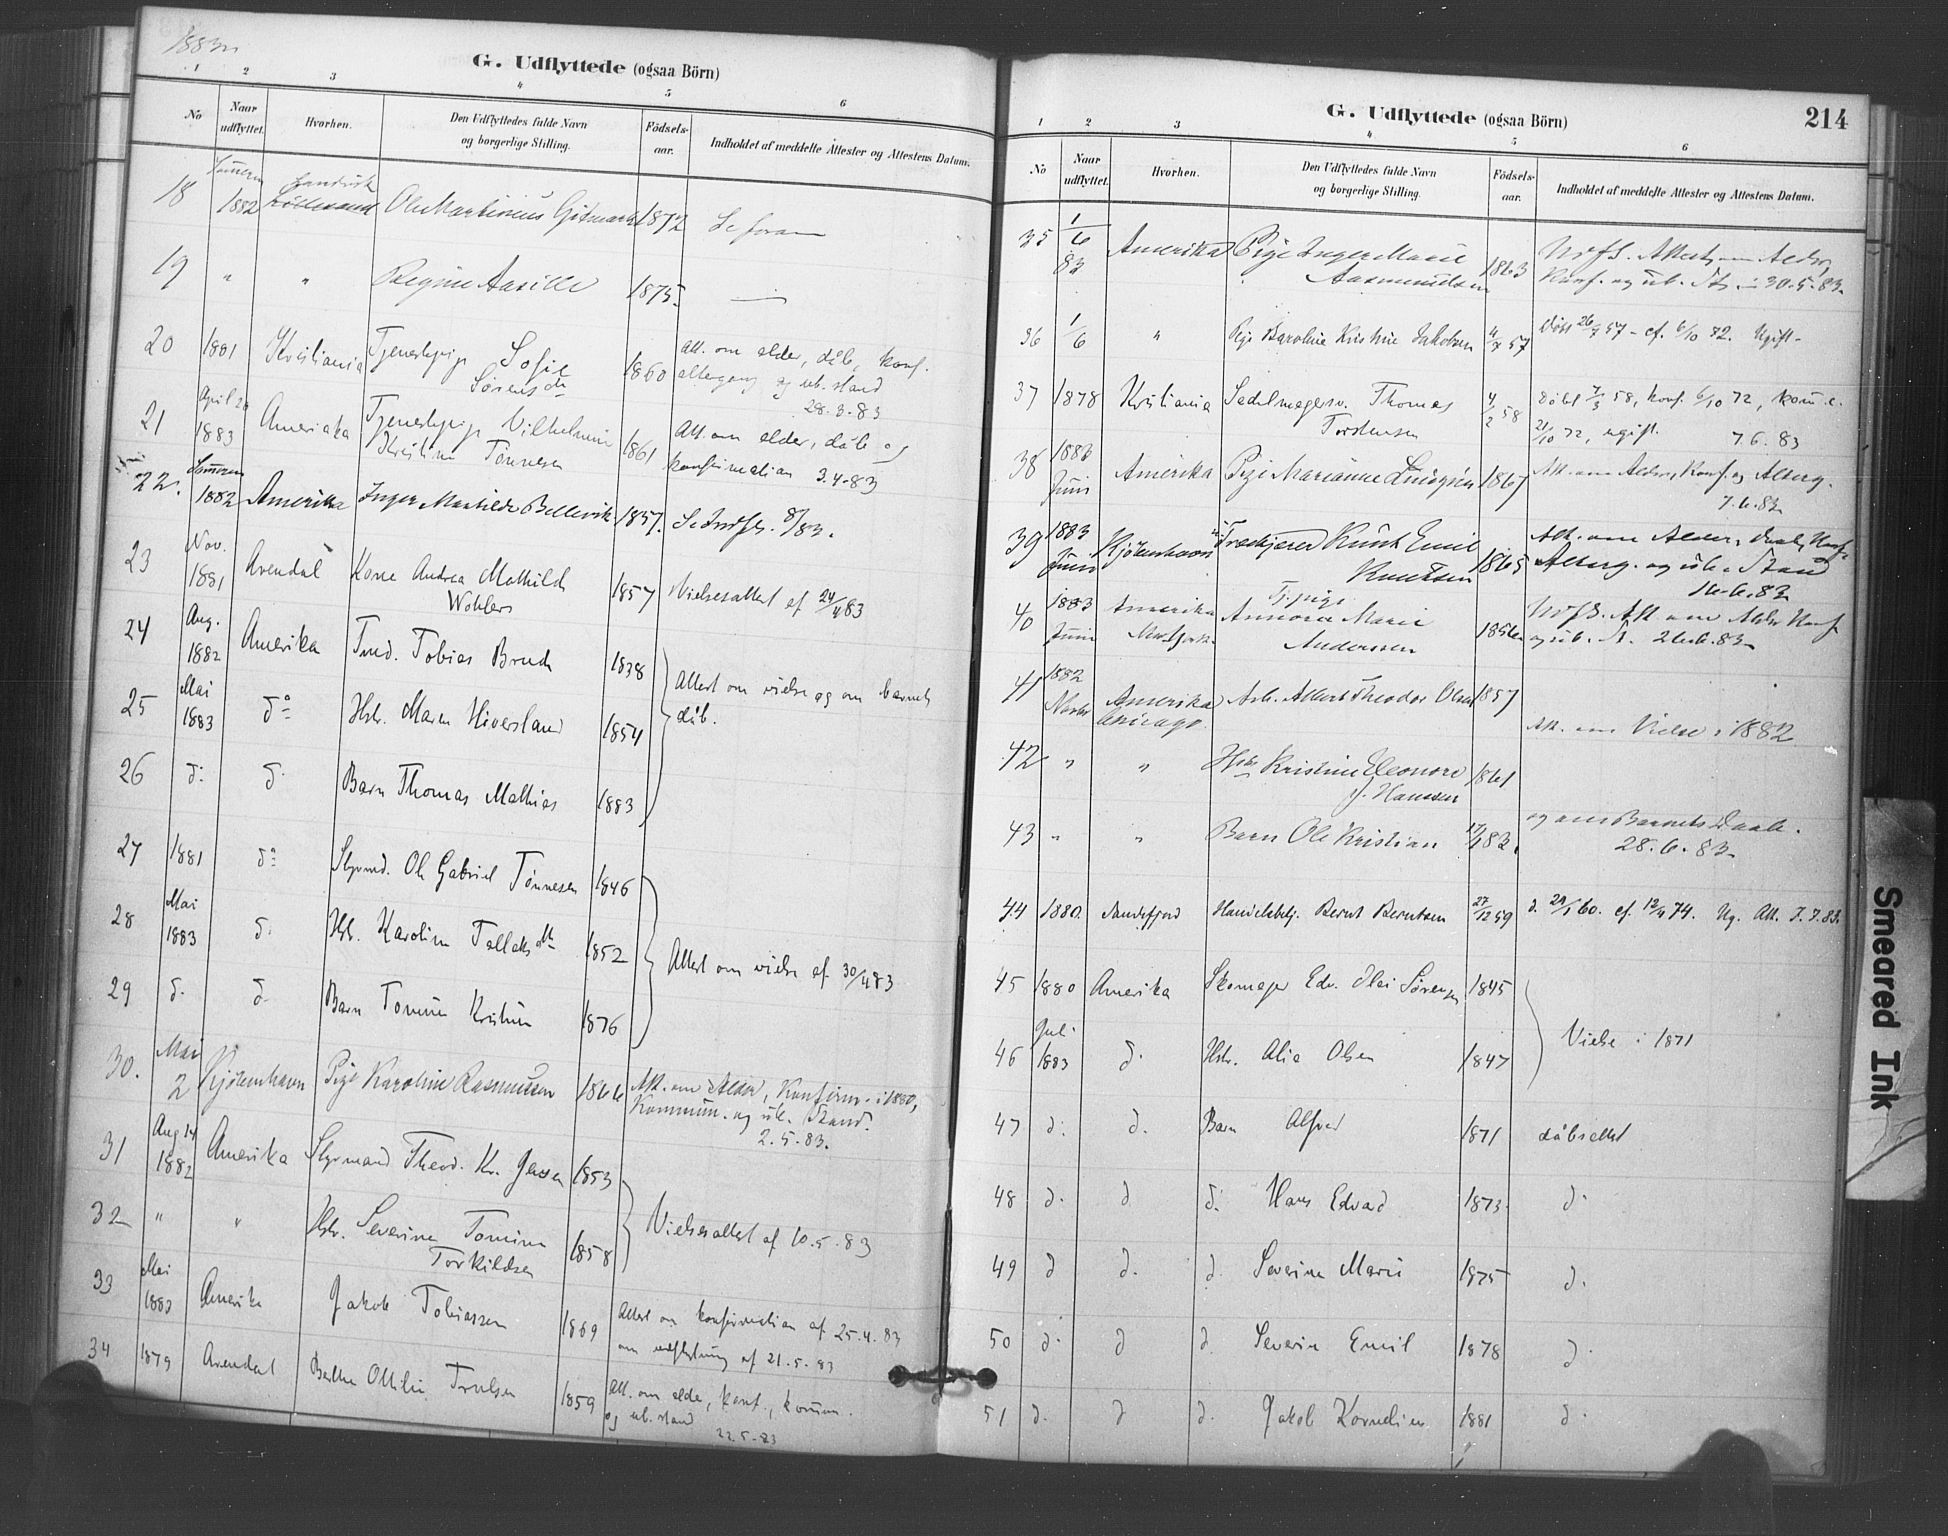 1883
G. Udflyttede (ogsaa Börn)
1 2 3 4 5 6
No
Naar udflyttet.
Hvorhen.
Den Udflyttedes fulde Navn og borgerlige Stilling.
Födsels- aar.
Indholdet af meddelte Attester og Attestens Datum.
18 Sommeren 1882 Ole Martinius Gitmark 1872 Se foran
19 " " Regine Aasille 1875 —
20 1881 Kristiania Tjenestepige Sofie 1860 Att. om alder, dåb, konf.
Sørensdtr altergang og ub. stand
28.3.83
21 April 20 1883 Amerika Tjenestepige Vilhelmine 1861 Att. om alder, dåb og
Kristine Tönnesen konfirmation 3.4.83
22. Sommeren 1882 Amerika Inger Mathilde Bellevik 1857. Se Indfl. 8/83.
23 Nov. 1881 Arendal Kone Andrea Mathilde 1857 Vielsesattest af 24/4 83
Wohlers
24 Aug. 1882 Amerika Tobias Brude 1838 Attest om vielse og om barnets
dåb.
25 Mai 1883 do Hstr. Maren Hiversland 1854
26 d: d. Barn Thomas Mathias 1883
27 1881 do Styrmd. Ole Gabriel Tönnesen 1846
28 Mai 1883 d. Hstr. Karoline Tellefsdtr 1852 Attest om vielse af 30/4 83
29 d. d. Barn Tomine Kristine 1876
30. Mai 2 Kjöbenhavn Pige Karoline Rasmussen 1866 Att. om Alder, Konfirm. i 1880,
Kommun. og ub. Stand.
2.5.83.
31 Aug 14 1882 Amerika Styrmand Theod. Kr. Jensen 1853
32 " " Hstr. Severine Tomine 1858 Vielsesattest af 10.5.83
Torkildsen
33 Mai 1883 Amerika Jakob Tobiassen 1869 Attest om konfirmation af 25.4.83
om udflytning af 21.5.83
34 1879 Arendal Berthe Ottilie Trulsen 1859 Att. om alder, konf., kommun.
og ub. stand
22.5.83
214
G. Udflyttede (ogsaa Börn)
1 2 3 4 5 6
No
Naar udflyttet.
Hvorhen.
Den Udflyttedes fulde Navn og borgerlige Stilling.
Födsels- aar.
Indholdet af meddelte Attester og Attestens Datum.
35 1/6 83 Amerika Pige Inger Marie 1863 Attest om Alder,
Aasmundsen Konf. og ub. St. 30.5.83
36 1/6 " Pige Baroline Kristine Jakobsen 4/7 57 döbt 26/7 57 - cf. 6/10 72. Ugift-
37 1878 Kristiania Sadelmagersv. Thomas 4/2 58 döbt 7/3 58, konf. 6/10 72, kom. e.
Torstensen 21/10 72, ugift. 7.6.83
38 1883 Juni Amerika Pige Marianne Lindqvist 1867 Att. om Alder, Konf. og Alterg.
7.6.83
39 1883 Juni Kjöbenhavn Knut Emil 1865 Att. om Alder, Daab, Konf.
Knutsen Alterg. og ub. Stand
16.6.83
40 1883 Juni Amerika Tj.pige
Annora Marie 1856 Att. om Alder Konf.
Anderssen og ub. St. 26.6.83
41 1882 Amerika Chicago. Arb. Albert Theodor Olsen 1857
Att. om Vielse i 1882
42 " " Hstr Kristine Eleonore 1861
J. Hanssen
43 " " Barn Ole Kristian og om Barnets Daab.
28.6.83
44 1880. Sandefjord Handelsbetj. Bernt Berntsen 27/12 59 d. 29/1 60. cf. 12/4 74. Ug. Att. 7.7.83
45 1880 Amerika Skomager Edv. Olai Sörensen 1845
46 Juli 1883 d. Hstr. Alia Olsen 1847 Vielse i 1871
47 d. d. Barn Alfred 1871 dåbsattest
48 d. d d. Hans Edvard 1873 d.
49 d d. d. Severine Marie 1875 d.
50 d. d d. Severin Emil 1878 d.
51 d. d d. Jakob Kornelius 1881 d.
Smeared Ink